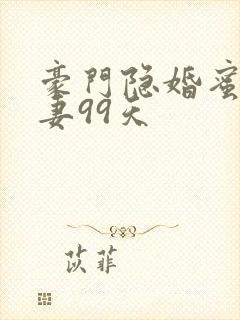 豪門隐婚蜜
妻99天
苡菲